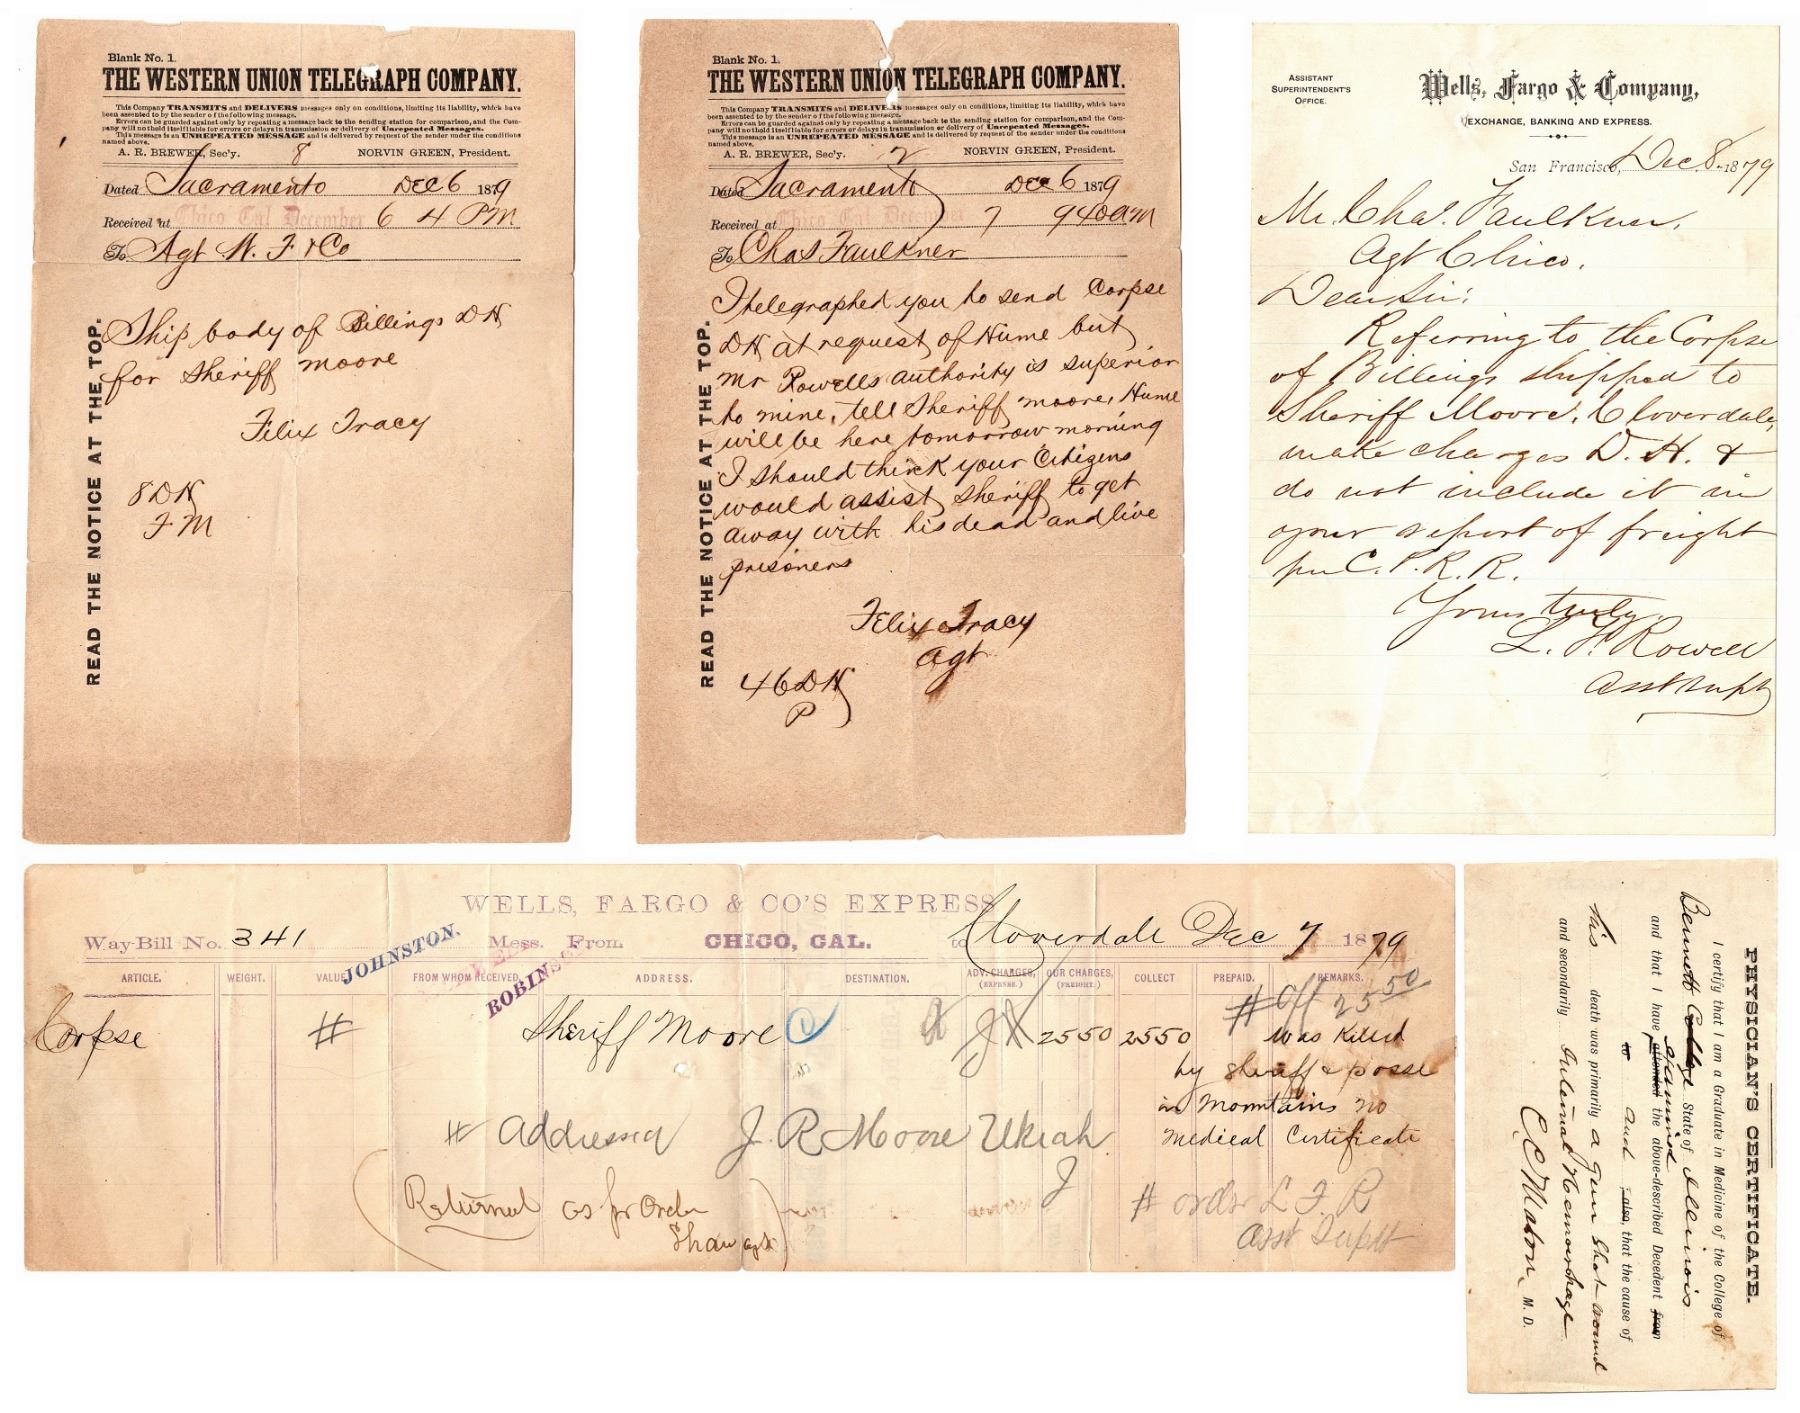 Blank No. 1.
THE WESTERN UNION TELEGRAPH COMPANY.
This Company TRANSMITS and DELIVERS messages only on conditions, limiting its liability, which have
been assented to by the sender of the following message.
Errors can be guarded against only by repeating a message back to the sending station for comparison, and the Com-
pany will not hold itself liable for errors or delays in transmission or delivery of Unrepeated Messages.
This message is an UNREPEATED MESSAGE and is delivered by request of the sender under the conditions
named above.
A. R. BREWER, Sec'y. 8 NORVIN GREEN, President.
Dated Sacramento DEC 6 1879
Received at Chico Cal December 6 4 PM
To Agt W. F & Co
READ THE NOTICE AT THE TOP.
Ship body of Billings DH
for Sheriff Moore
Felix Tracy
8 DH
F M
Blank No. 1.
THE WESTERN UNION TELEGRAPH COMPANY.
This Company TRANSMITS and DELIVERS messages only on conditions, limiting its liability, which have
been assented to by the sender of the following message.
Errors can be guarded against only by repeating a message back to the sending station for comparison, and the Com-
pany will not hold itself liable for errors or delays in transmission or delivery of Unrepeated Messages.
This message is an UNREPEATED MESSAGE and is delivered by request of the sender under the conditions
named above.
A. R. BREWER, Sec'y. 2 NORVIN GREEN, President.
Dated Sacramento DEC 6 1879
Received at Chico Cal December 7 940am
To Chas Faulkner
READ THE NOTICE AT THE TOP.
I telegraphed you to send Corpse
DH at request of Hume but
Mr Rowells authority is superior
to mine, tell Sheriff Moore, Hume
will be here tomorrow morning
I should think your Citizens
would assist Sheriff to get
away with his dead and live
prisoners
Felix Tracy
Agt
46 DH
P
ASSISTANT
SUPERINTENDENT'S
OFFICE.
Wells, Fargo & Company,
EXCHANGE, BANKING AND EXPRESS.
San Francisco, Dec 8 1879
Mr. Chas. Faulkner,
Agt Chico.
Dear Sir:
Referring to the Corpse
of Billings shipped to
Sheriff Moore, Cloverdale,
make charges D. H. &
do not include it in
your report of freight
per C. P. R. R.
Yours truly,
L. F. Rowell
Asst Supt
WELLS, FARGO & CO'S EXPRESS
Way-Bill No. 341 JOHNSTON. Mess. From CHICO, CAL. to Cloverdale Dec 7 1879
ROBINS
ARTICLE. WEIGHT. VALUE FROM WHOM RECEIVED ADDRESS. DESTINATION. ADV. CHARGES, (EXPENSE.) OUR CHARGES, (FREIGHT.) COLLECT PREPAID. REMARKS.
# Off 25 50
Corpse # Sheriff Moore 25 50 25 50 was Killed
by sheriff & posse
in Mountains no
Medical Certificate
# Addressed J R Moore Ukiah
Returned as per Order
Shaw agt
# order L F R
Asst Supt
PHYSICIAN'S CERTIFICATE.
I certify that I am a Graduate in Medicine of the College of
Bennett College State of Illinois
and that I have attended examined the above-described Decedent from
to and , also, that the cause of
his death was primarily a Gun Shot wound
and secondarily Internal Hemorrhage
C C Mason, M. D.